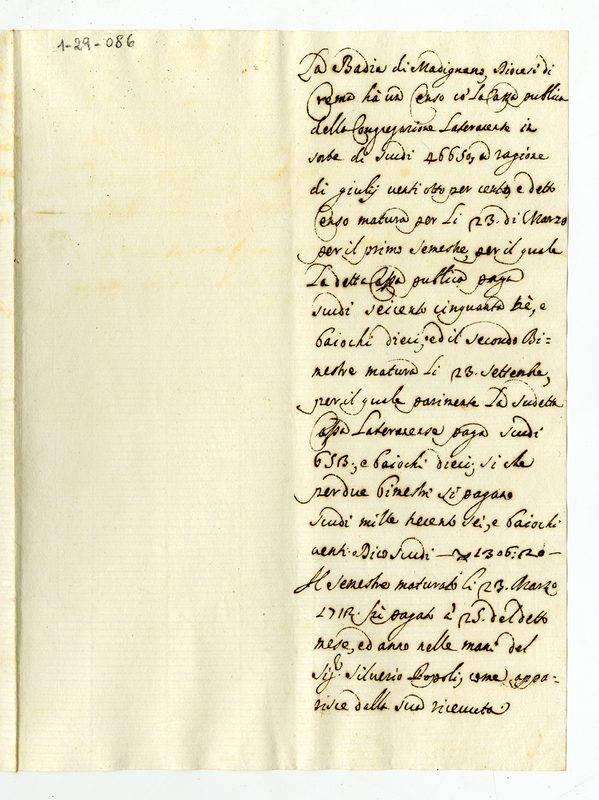 1-29-086
La Badia di Madignano, Diocesi di
Crema hà un Censo cõ la Cassa publica
della Congregazione Lateranense in
sorte di Scudi 46650, à ragione
di giulij venti otto per cento, e detto
Censo matura per li 23. di Marzo
per il primo Semestre, per il quale
la detta Cassa publica paga
Scudi seicento cinquanta trè, e
baiochi dieci, ed il secondo Bi=
mestre matura li 23. Settembre,
per il quale parimente la sudetta
Cassa Lateranense paga Scudi
653:, e baiochi dieci; si che
per due bimestri si pagano
Scudi mille trecento sei, e baiochi
venti. Dico Scudi — 1306:20 —
Il Semestre maturato li 23. Marzo
171 fù pagato à 25. del detto
mese, ed anno nelle mani del
Sig.r Silverio Popoli, come appa=
risce dalla sua ricevuta